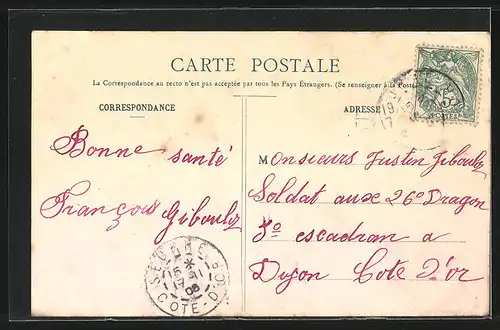 CARTE POSTALE
La Correspondance au recto n'est pas acceptée par tous les Pays Étrangers. (Se renseigner à la Poste)
CORRESPONDANCE
ADRESSE
Bonne santé
François Giboulz
Monsieurs Justin Giboulz
Soldat aux 26º Dragon
3º escadran a
Dijon Cote d'or
15
17 11
06
COTE-D'OR
5c
POSTES